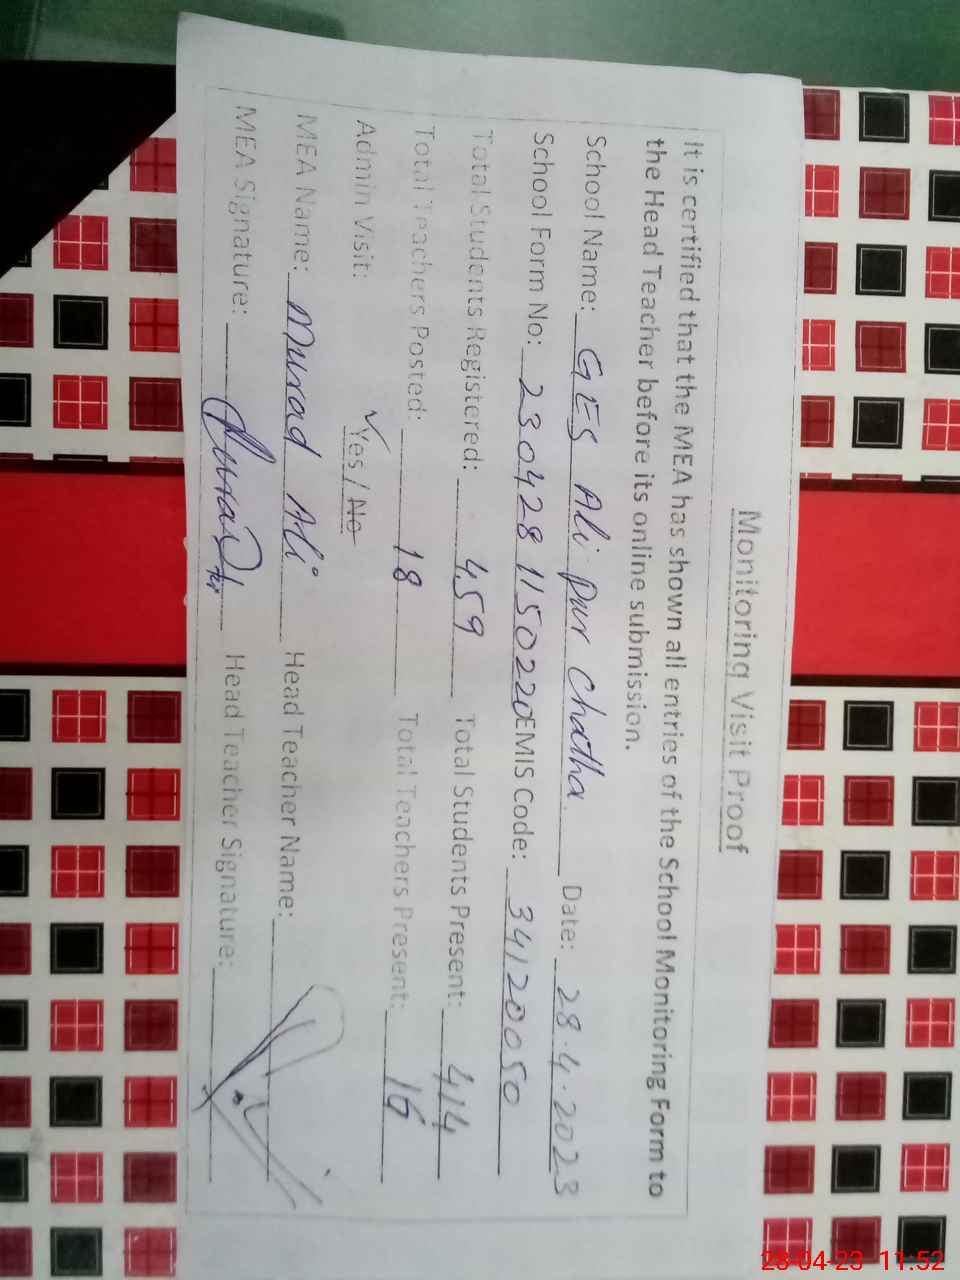 Monitoring Visit Proof
It is certified that the MEA has shown all entries of the School Monitoring Form to
the Head Teacher before its online submission.
School Name: GES Ali Pur Chatha Date: 28.4.2023
School Form No: 230428115022 EMIS Code: 34120050
Total Students Registered: 459 Total Students Present: 414
Total Teachers Posted: 18 Total Teachers Present: 16
Admin Visit: ✓Yes / No
MEA Name: Murad Ali Head Teacher Name:
MEA Signature: Head Teacher Signature:
28-04-23 11:52